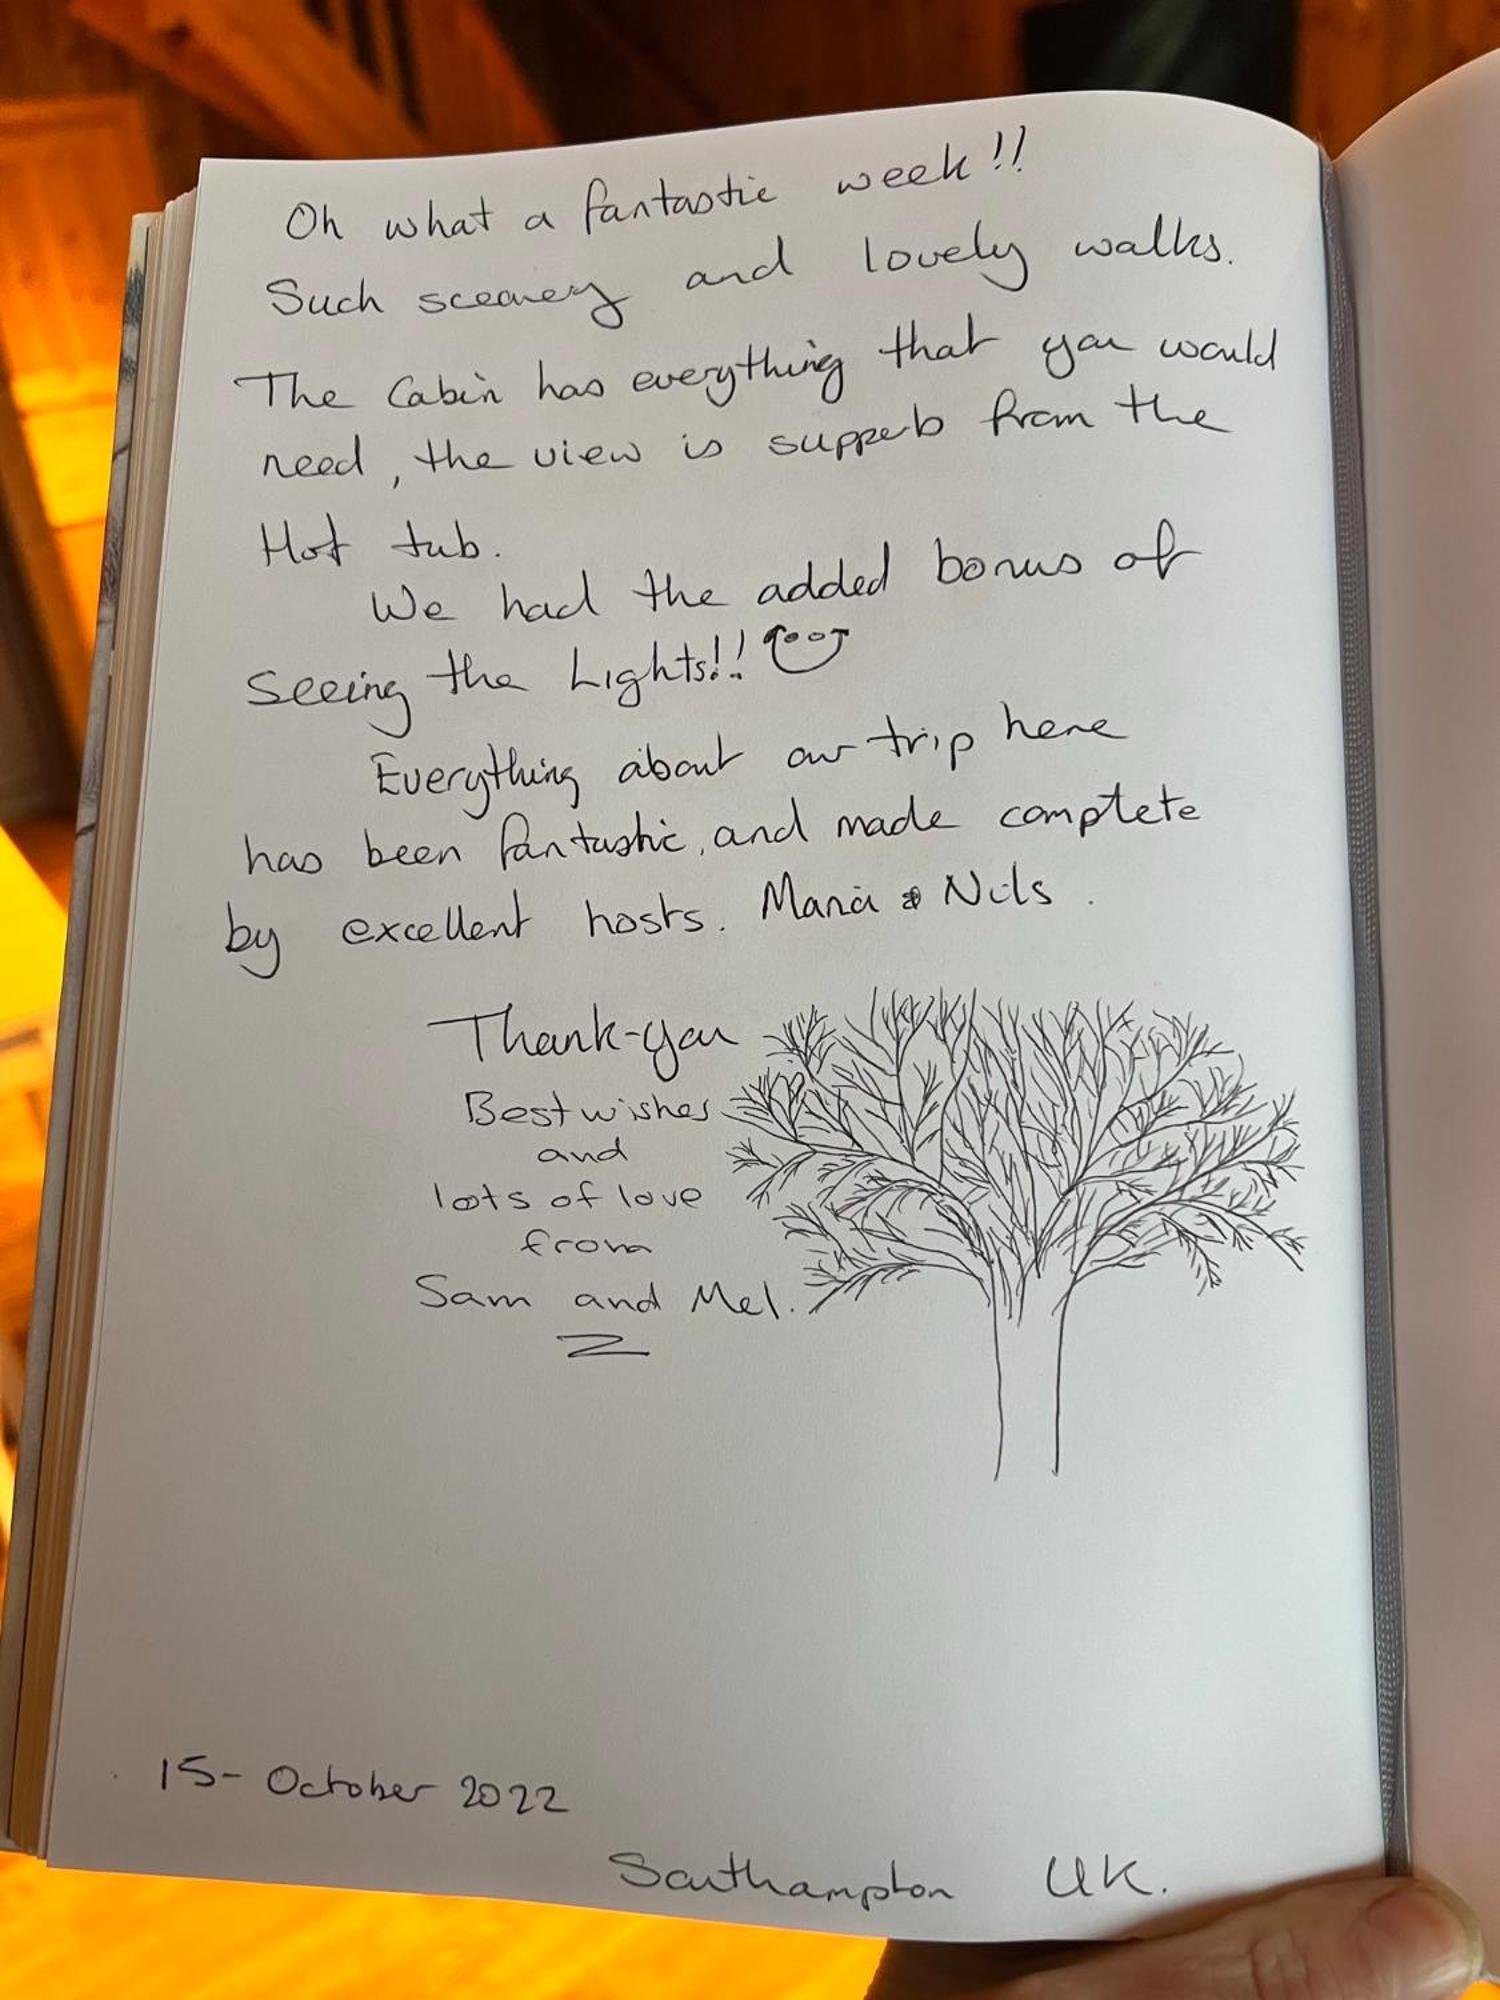 Oh what a fantastic week!!
Such scenery and lovely walks.
The Cabin has everything that you would
need, the view is supperb from the
Hot tub.
We had the added bonus of
Seeing the Lights!!
Everything about our trip here
has been fantastic, and made complete
by excellent hosts. Maria & Nils.
Thank-you
Best wishes
and
lots of love
from
Sam and Mel.
15- October 2022
Southampton UK.